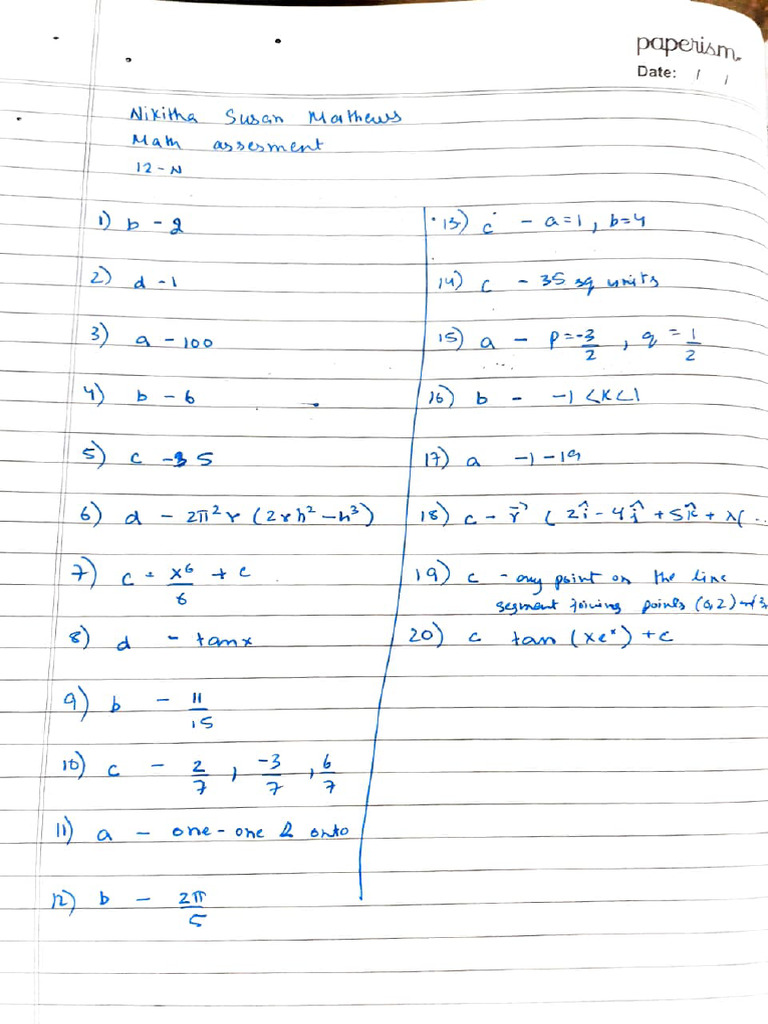 paperism.
Date: / /
Nikitha Susan Mathews
Math assesment
12-N
1) b - 2
2) d - 1
3) a - 100
4) b - 6
5) c - 35
6) d - 2π²r (2rh² - h³)
7) c = x⁶/6 + c
8) d - tanx
9) b - 11/15
10) c - 2/7, -3/7, 6/7
11) a - one-one & onto
12) b - 2π/5
13) c - a=1, b=4
14) c - 35 sq units
15) a - p=-3/2, q=1/2
16) b - -1<K<1
17) a -1-19
18) c - r⃗ (2î - 4ĵ + 5k̂ + λ(...
19) c - any point on the line
segment joining points (0,2) and (3
20) c tan (xeˣ) + c